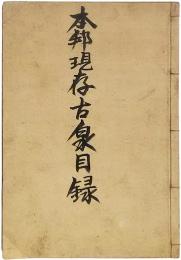 本邦現存古泉目録